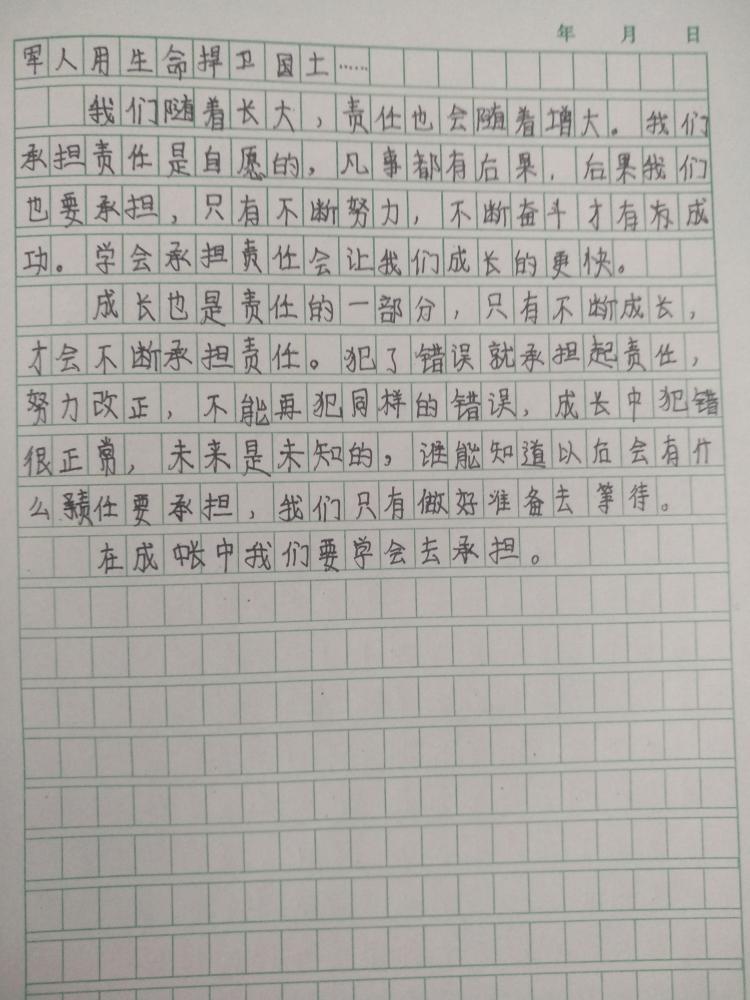 年 月 日
军人用生命捍卫国土……
我们随着长大，责任也会随着增大。我们
承担责任是自愿的，凡事都有后果，后果我们
也要承担，只有不断努力，不断奋斗才有成
功。学会承担责任会让我们成长的更快。
成长也是责任的一部分，只有不断成长，
才会不断承担责任。犯了错误就承担起责任，
努力改正，不能再犯同样的错误，成长中犯错
很正常，未来是未知的，谁能知道以后会有什
么责任要承担，我们只有做好准备去等待。
在成长中我们要学会去承担。